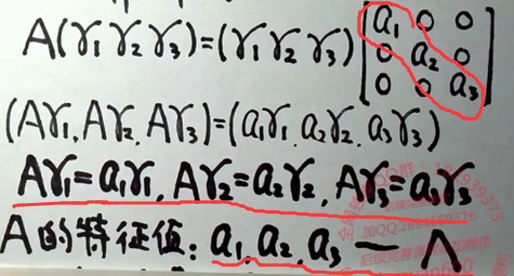 A(γ₁ γ₂ γ₃)=(γ₁ γ₂ γ₃) [a₁ 0 0
0 a₂ 0
0 0 a₃]
(Aγ₁, Aγ₂, Aγ₃)=(a₁γ₁, a₂γ₂, a₃γ₃)
Aγ₁=a₁γ₁, Aγ₂=a₂γ₂, Aγ₃=a₃γ₃
A的特征值: a₁, a₂, a₃ — Λ